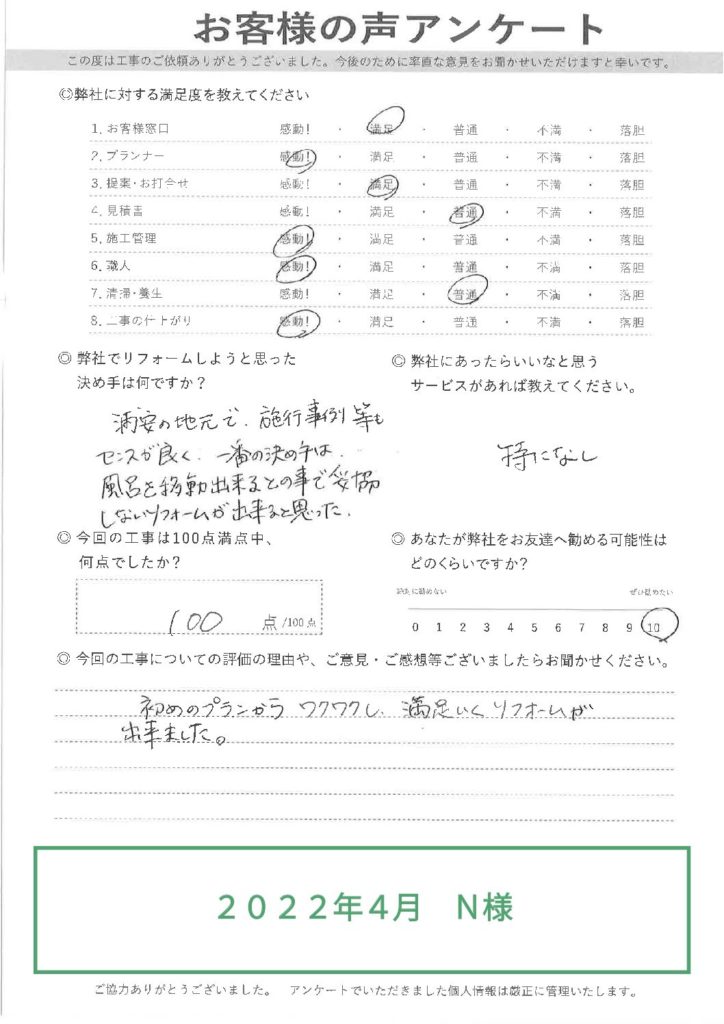 お客様の声アンケート
この度は工事のご依頼ありがとうございました。今後のために率直な意見をお聞かせいただけますと幸いです。
◎弊社に対する満足度を教えてください
1. お客様窓口 感動! ・ 満足 ・ 普通 ・ 不満 ・ 落胆
2. プランナー 感動! ・ 満足 ・ 普通 ・ 不満 ・ 落胆
3. 提案・お打合せ 感動! ・ 満足 ・ 普通 ・ 不満 ・ 落胆
4. 見積書 感動! ・ 満足 ・ 普通 ・ 不満 ・ 落胆
5. 施工管理 感動! ・ 満足 ・ 普通 ・ 不満 ・ 落胆
6. 職人 感動! ・ 満足 ・ 普通 ・ 不満 ・ 落胆
7. 清掃・養生 感動! ・ 満足 ・ 普通 ・ 不満 ・ 落胆
8. 工事の仕上がり 感動! ・ 満足 ・ 普通 ・ 不満 ・ 落胆
◎ 弊社でリフォームしようと思った
決め手は何ですか?
浦安の地元で、施行事例等も
センスが良く、一番の決め手は、
風呂を移動出来るとの事で妥協
しないリフォームが出来ると思った.
◎ 弊社にあったらいいなと思う
サービスがあれば教えてください。
特になし
◎ 今回の工事は100点満点中、
何点でしたか?
100 点 /100点
◎ あなたが弊社をお友達へ勧める可能性は
どのくらいですか?
絶対に勧めない ぜひ勧めたい
0 1 2 3 4 5 6 7 8 9 10
◎ 今回の工事についての評価の理由や、ご意見・ご感想等ございましたらお聞かせください。
初めのプランから ワクワクし、満足いくリフォームが
出来ました。
２０２２年４月　Ｎ様
ご協力ありがとうございました。　アンケートでいただきました個人情報は厳正に管理いたします。